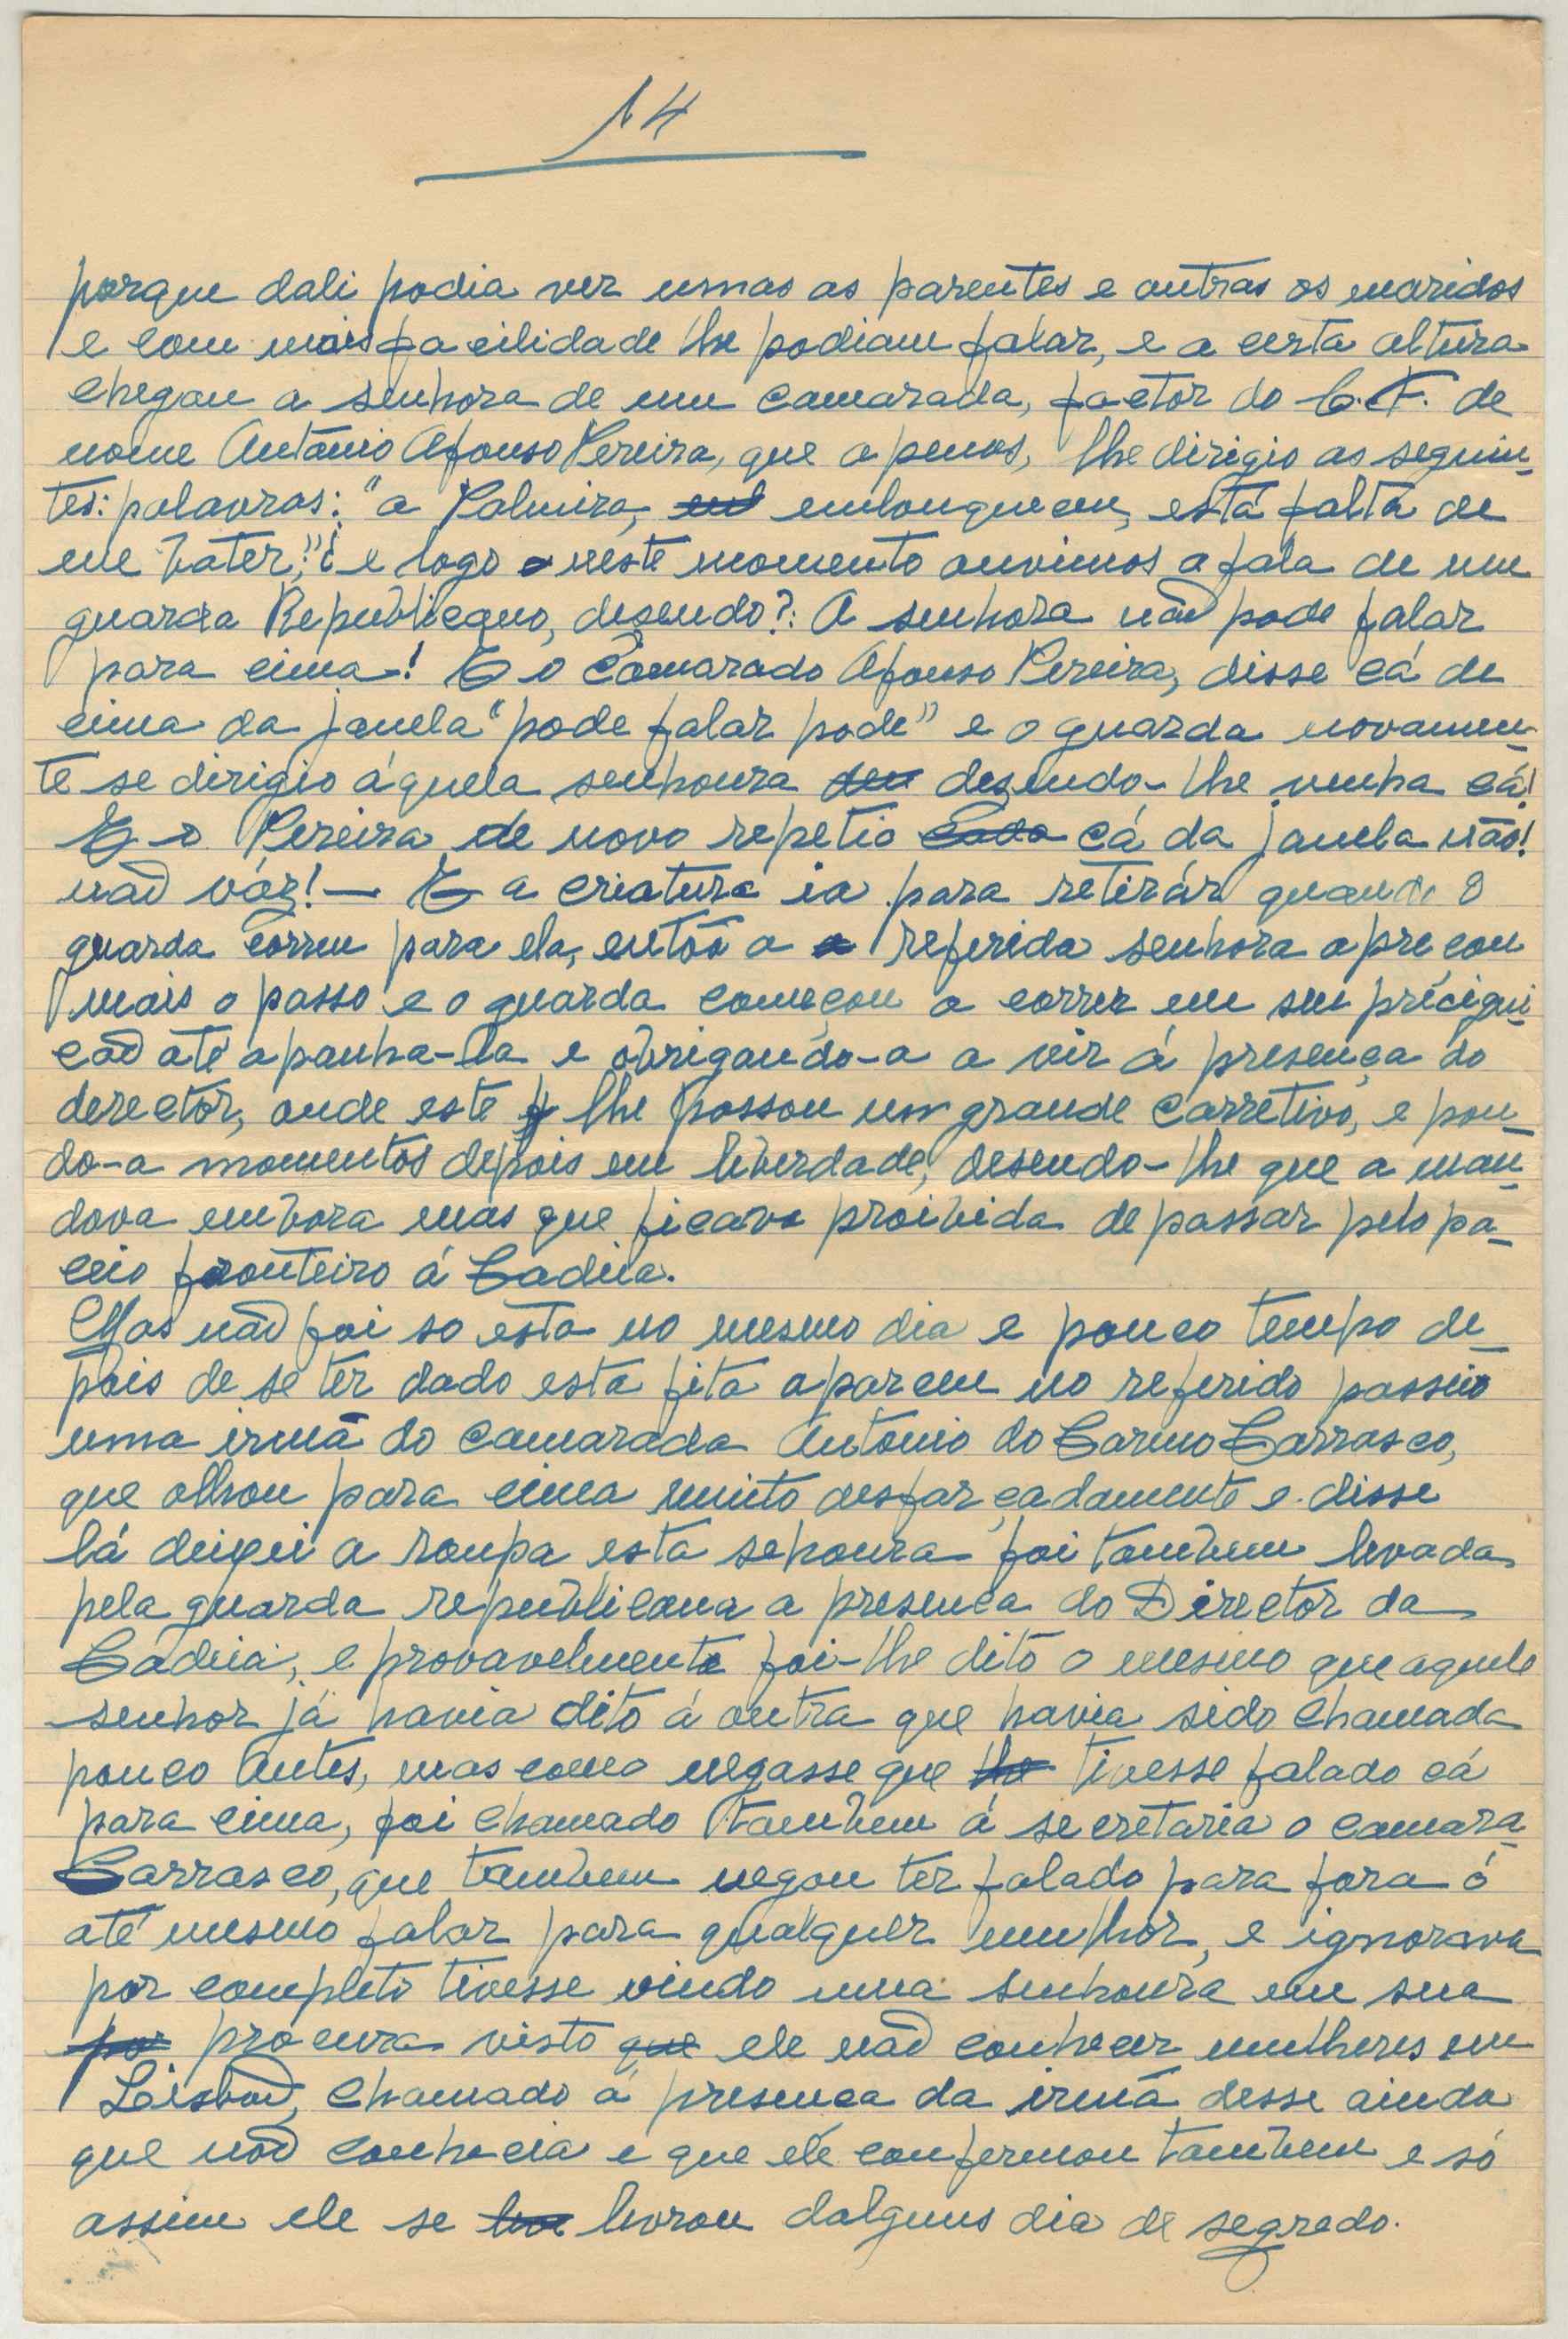 14
porque dali podia ver umas as parentes e outras os maridos
e com mais facilidade lhe podiam falar, e a certa altura
chegou a senhora de um camarada, factor do C.F. de
nome António Afonso Pereira, que apenas, lhe dirigio as seguin-
tes: palavras: "a Palmira, emlouqueceu, está falta de
me bater," e logo neste momento ouvimos a fala de um
guarda Republicano, desendo?: A senhora não pode falar
para cima! E o Camarado Afonso Pereira, disse cá de
cima da janela "pode falar pode" e o guarda novamen-
te se dirigio áquela senhoura desendo-lhe venha cá!
E o Pereira de novo repetio cá da janela não!
não váz! — E a criatura ia para retirár quando o
guarda correu para ela, então a referida senhora apreçou
mais o passo e o guarda começou a correr em seu précigui-
cão até apanha-la e obrigando-a a vir á presença do
derector, onde este lhe passou um grande carretivo, e pon-
do-a momentos depois em liberdade, desendo-lhe que a man-
dova embora mas que ficava proibida de passar pelo pa-
ceio fronteiro á Cadeia.
Mas não foi so esta no mesmo dia e pouco tempo de-
pois de se ter dado esta fita apareceu no referido passeio
uma irmã do camarada António do Carmo Carrasco,
que olhou para cima muito desfarçadamente e disse
lá deixei a roupa, esta sehoura foi tambem levada
pela guarda republicana a presenca do Director da
Cadeia, e provavelmente foi-lhe dito o mesmo que aquele
senhor já havia dito á outra que havia sido chamada
pouco antes, mas como negasse que tivesse falado cá
para cima, foi chamado tambem á secretaria o camara
Carrasco, que tambem negou ter falado para fora ó
até mesmo falar para qualquer mulhor, e ignorava
por completo tivesse vindo uma senhoura em sua
procura visto ele não conhecer mulheres em
Lisboa, chamado á presenca da irmã desse ainda
que não conhecia e que ele confermou tambem e só
assim ele se livrou dalguns dia de segredo.